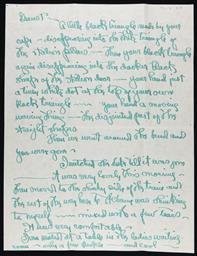 Dearest —
A little black triangle made by your
cape — disappearing into the black triangle of
the station — then your black triangle
again disappearing into the darker black
of the station door — your hand just
a tiny white dot at the top of your own
black triangle — your hand a moving
moving thing — the disjointed part of the
straight
Then we went around the bend and
you were gone —
I watched the lake till it was gone
— it was very lovely this morning —
Then moved to the shady side of the train and
the rest of the way here to Albany was thinking
to myself — mixed with a few tears
I am very comfortable —
at a table in the ladies writing
room — only a few people — and cool